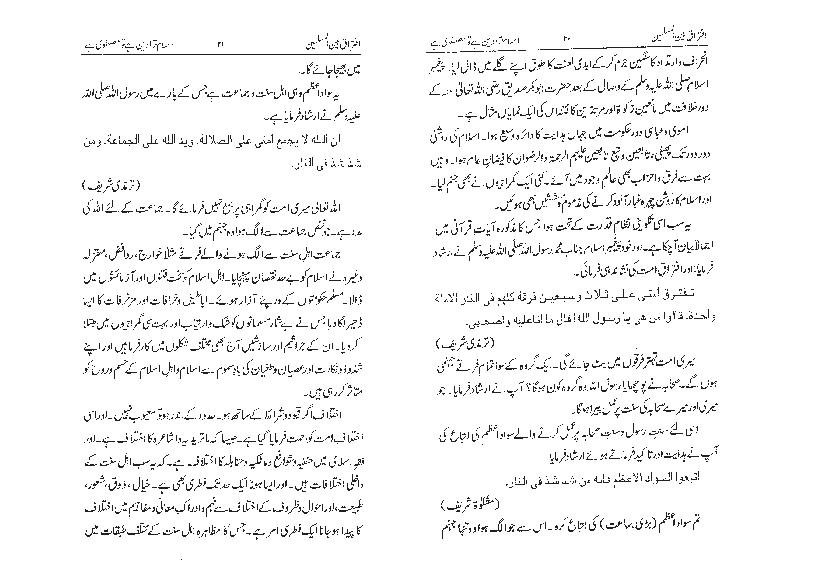 افتراق بین المسلمین ۲۰ اسلام تو دین ہے تو مصطفوی ہے
انحراف و ارتداد کا سنگین جرم کر کے ابدی لعنت کا طوق اپنے گلے میں ڈال لیا۔ پیغمبر
اسلام صلی اللہ علیہ وسلم کے وصال کے بعد حضرت ابوبکر صدیق رضی اللہ تعالیٰ عنہ کے
دور خلافت میں مانعین زکوٰۃ اور مرتدین کا فتنہ اس کی ایک نمایاں مثال ہے۔
اموی و عباسی دور حکومت میں جہاں ہدایت کا دائرہ وسیع ہوا۔ اسلام کی روشنی
دور دور تک پھیلی، تابعین و تبع تابعین علیہم الرحمۃ والرضوان کا فیضان عام ہوا۔ وہیں
بہت سے فرق و احزاب بھی عالم وجود میں آئے۔ کئی ایک گمراہیوں نے بھی جنم لیا۔
اور اسلام کا روشن چہرہ غبار آلود کرنے کی مذموم کوششیں بھی ہوئیں۔
یہ سب اسی تکوینی نظام قدرت کے تحت ہوا جس کا مذکورہ آیات قرآنی میں
اجمالاً بیان آچکا ہے۔ اور خود پیغمبر اسلام جناب محمد رسول اللہ صلی اللہ علیہ وسلم نے ارشاد
فرمایا: اور افتراق امت کی نشاندہی فرمائی۔
تفترق أمتی علی ثلاث وسبعین فرقة کلهم فی النار الا ملة
واحدة، قالوا من هی یا رسول الله! قال ما انا علیه واصحابی۔
(ترمذی شریف)
میری امت تہتر فرقوں میں بٹ جائے گی۔ ایک گروہ کے سوا تمام فرقے جہنمی
ہوں گے۔ صحابہ نے پوچھا یا رسول اللہ وہ گروہ کون ہوگا؟ آپ نے ارشاد فرمایا۔ جو
میری اور میرے صحابہ کی سنت پر عمل پیرا ہوگا۔
اسی لئے سنت رسول و سنت صحابہ پر عمل کرنے والے سواد اعظم کی اتباع کی
آپ نے ہدایت اور تاکید فرماتے ہوئے ارشاد فرمایا
اتبعوا السواد الاعظم فانه من شذ شذ فی النار۔
(مشکوٰۃ شریف)
تم سواد اعظم (بڑی جماعت) کی اتباع کرو۔ اس سے جو الگ ہوا وہ تنہا جہنم
افتراق بین المسلمین ۲۱ اسلام تو دین ہے تو مصطفوی ہے
میں بھیجا جائے گا۔
یہ سواد اعظم وہی اہل سنت و جماعت ہے جس کے بارے میں رسول اللہ صلی اللہ
علیہ وسلم نے ارشاد فرمایا ہے۔
ان الله لا یجمع أمتی علی الضلالة، وید الله علی الجماعة، ومن
شذ شذ فی النار۔
(ترمذی شریف)
اللہ تعالیٰ میری امت کو گمراہی پر جمع نہیں فرمائے گا۔ جماعت کے لئے اللہ کی
مدد ہے۔ جو شخص جماعت سے الگ ہوا وہ جہنم میں گیا۔
جماعت اہل سنت سے الگ ہونے والے فرقے مثلاً خوارج، روافض، معتزلہ
وغیرہ نے اسلام کو بے حد نقصان پہنچایا۔ اہل اسلام کو سخت فتنوں اور آزمائشوں میں
ڈالا۔ مسلم حکومتوں کے درپئے آزار ہوئے۔ اباطیل و خرافات اور مزخرفات کا ایسا
ڈھیر لگا دیا جس نے بے شمار مسلمانوں کو شک و ارتیاب اور بہت سی گمراہیوں میں مبتلا
کر دیا۔ ان کے جراثیم اور سازشیں آج بھی مختلف شکلوں میں کارفرما ہیں اور اپنے
شذوذ و نکارت اور عصیان و طغیان کی باد سموم سے اسلام و اہل اسلام کے جسم و روح کو
متاثر کر رہی ہیں۔
اختلاف اگر قیود و شرائط کے ساتھ ہو۔ حدود کے اندر ہو تو معیوب نہیں۔ اور اسی
اختلاف امت کو رحمت فرمایا گیا ہے۔ جیسا کہ ماتریدیہ و اشاعرہ کا اختلاف ہے۔ اور
فقہ اسلامی میں حنفیہ و شوافع و مالکیہ و حنابلہ کا اختلاف ہے۔ کہ یہ سب اہل سنت کے
داخلی اختلافات ہیں۔ اور ایسا ہونا ایک حد تک فطری بھی ہے۔ خیال، ذوق، شعور،
طبیعت، اور احوال و ظروف کے اختلاف سے فہم و ادراک معانی و مفاہیم میں اختلاف
کا پیدا ہو جانا ایک فطری امر ہے۔ جس کا مظاہرہ اہل سنت کے مختلف طبقات میں